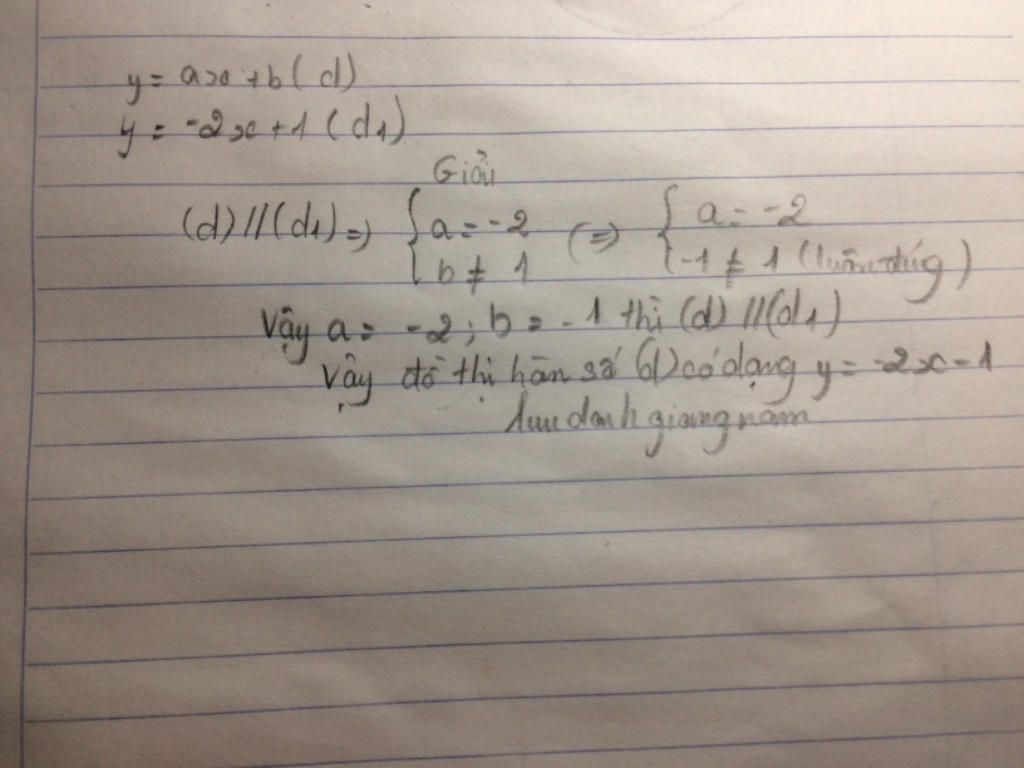 y = ax + b (d)
y = -2x + 1 (d1)
Giải
(d) // (d1) => { a = -2 b ≠ 1 (=> { a = -2 -1 ≠ 1 (luôn đúg)
Vậy a = -2; b = -1 thì (d) // (d1)
Vậy đồ thị hàn số (d) có dạng y = -2x - 1
lưu danh giang nam